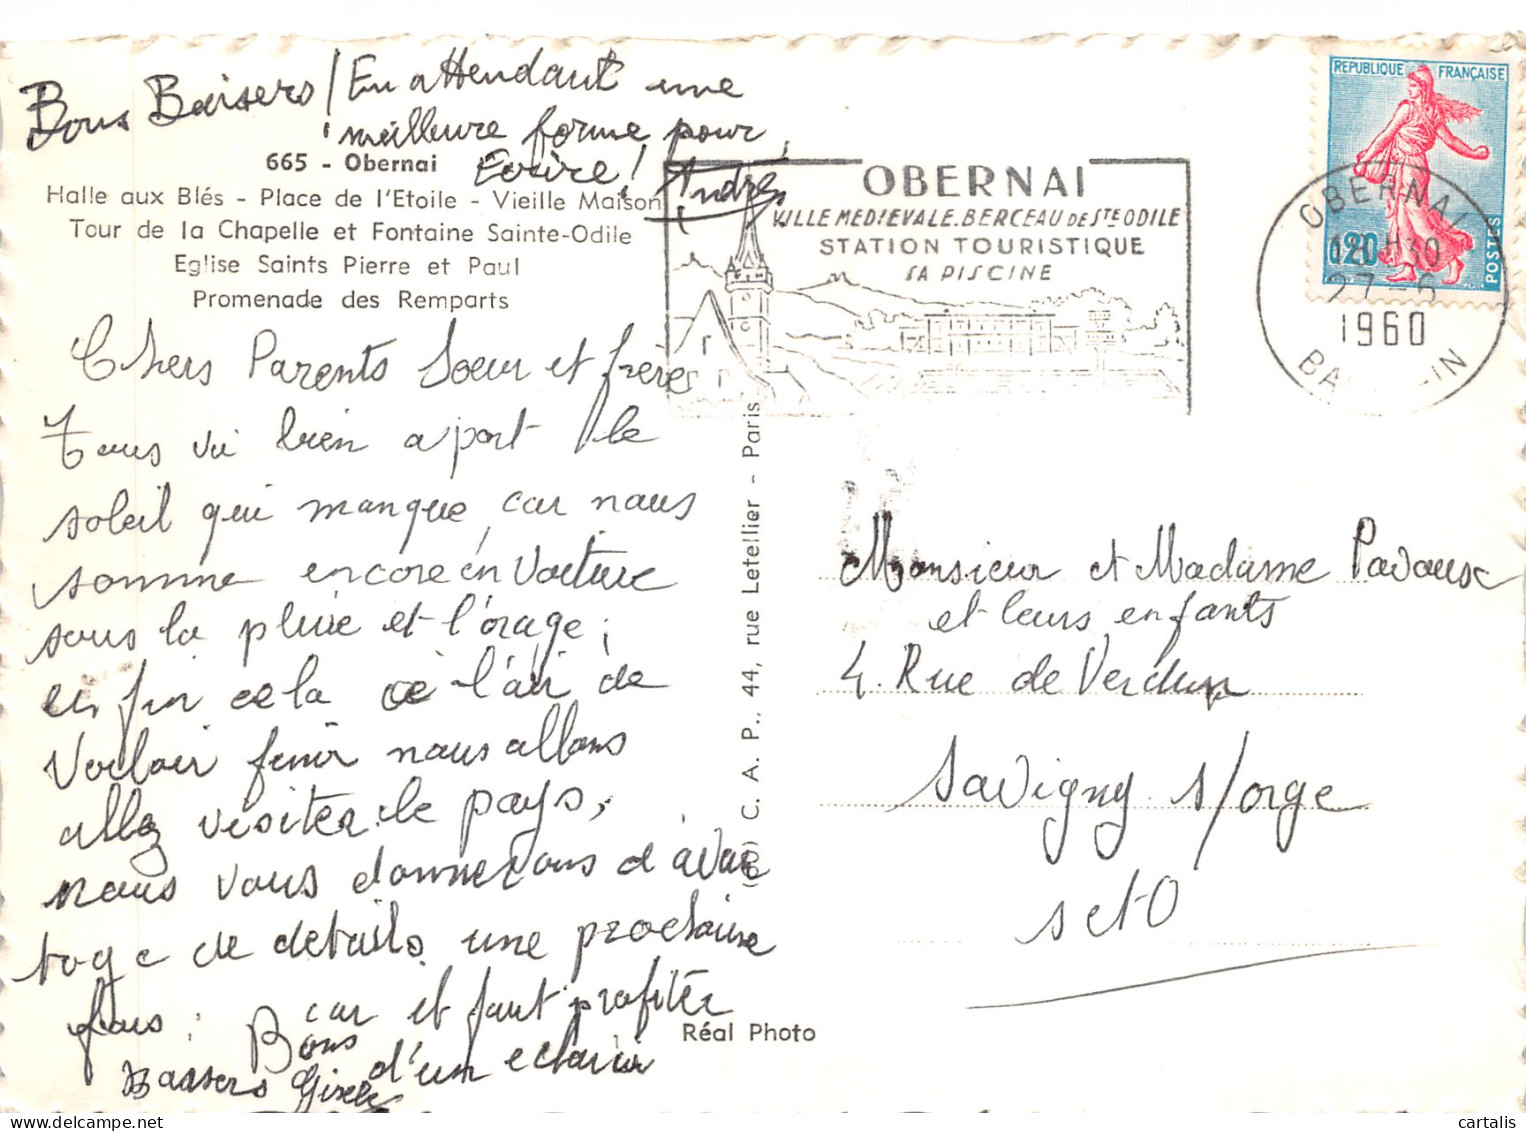 Bons Baisers / En attendant une
meilleure forme pour
Ecrire !
André
665 - Obernai
Halle aux Blés - Place de l'Etoile - Vieille Maison
Tour de la Chapelle et Fontaine Sainte-Odile
Eglise Saints Pierre et Paul
Promenade des Remparts
Chers Parents Soeur et frères
Tous va bien a part le
soleil qui manque, car nous
somme encore en Voiture
sous la pluie et l'orage;
en fin cela a l'air de
Vouloir finir nous allons
allez visiter le pays,
nous vous donnerons d'avan
tage de details une prochaine
fois; car il faut profiter
d'un eclairci
Bons
Bassers Gisele
OBERNAI
VILLE MEDIEVALE. BERCEAU DE STE ODILE
STATION TOURISTIQUE
SA PISCINE
REPUBLIQUE FRANÇAISE
0,20
POSTES
OBERNAI
27 - 6
1960
BAS-RHIN
C. A. P., 44, rue Letellier - Paris
Réal Photo
Monsieur et Madame Pavaux
et leurs enfants
4. Rue de Verdun
Savigny s/orge
S et O